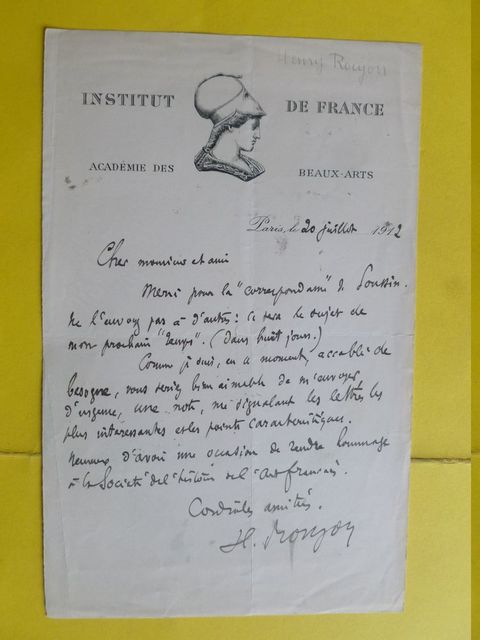 Henry Roujon
INSTITUT DE FRANCE
ACADÉMIE DES BEAUX-ARTS
Paris, le 20 juillet 1912
Cher monsieur et ami
Merci pour la "correspondance" de Poussin.
Ne l'envoyez pas à d'autres : ce sera le sujet de
mon prochain "Temps". (Dans huit jours.)
Comme je suis, en ce moment, accablé de
besogne, vous seriez bien aimable de m'envoyer
d'urgence, une note, me signalant les lettres les
plus intéressantes et les points caractéristiques.
Heureux d'avoir une occasion de rendre hommage
à la Société de l'histoire de l'Art français.
Cordiales amitiés.
H. Roujon